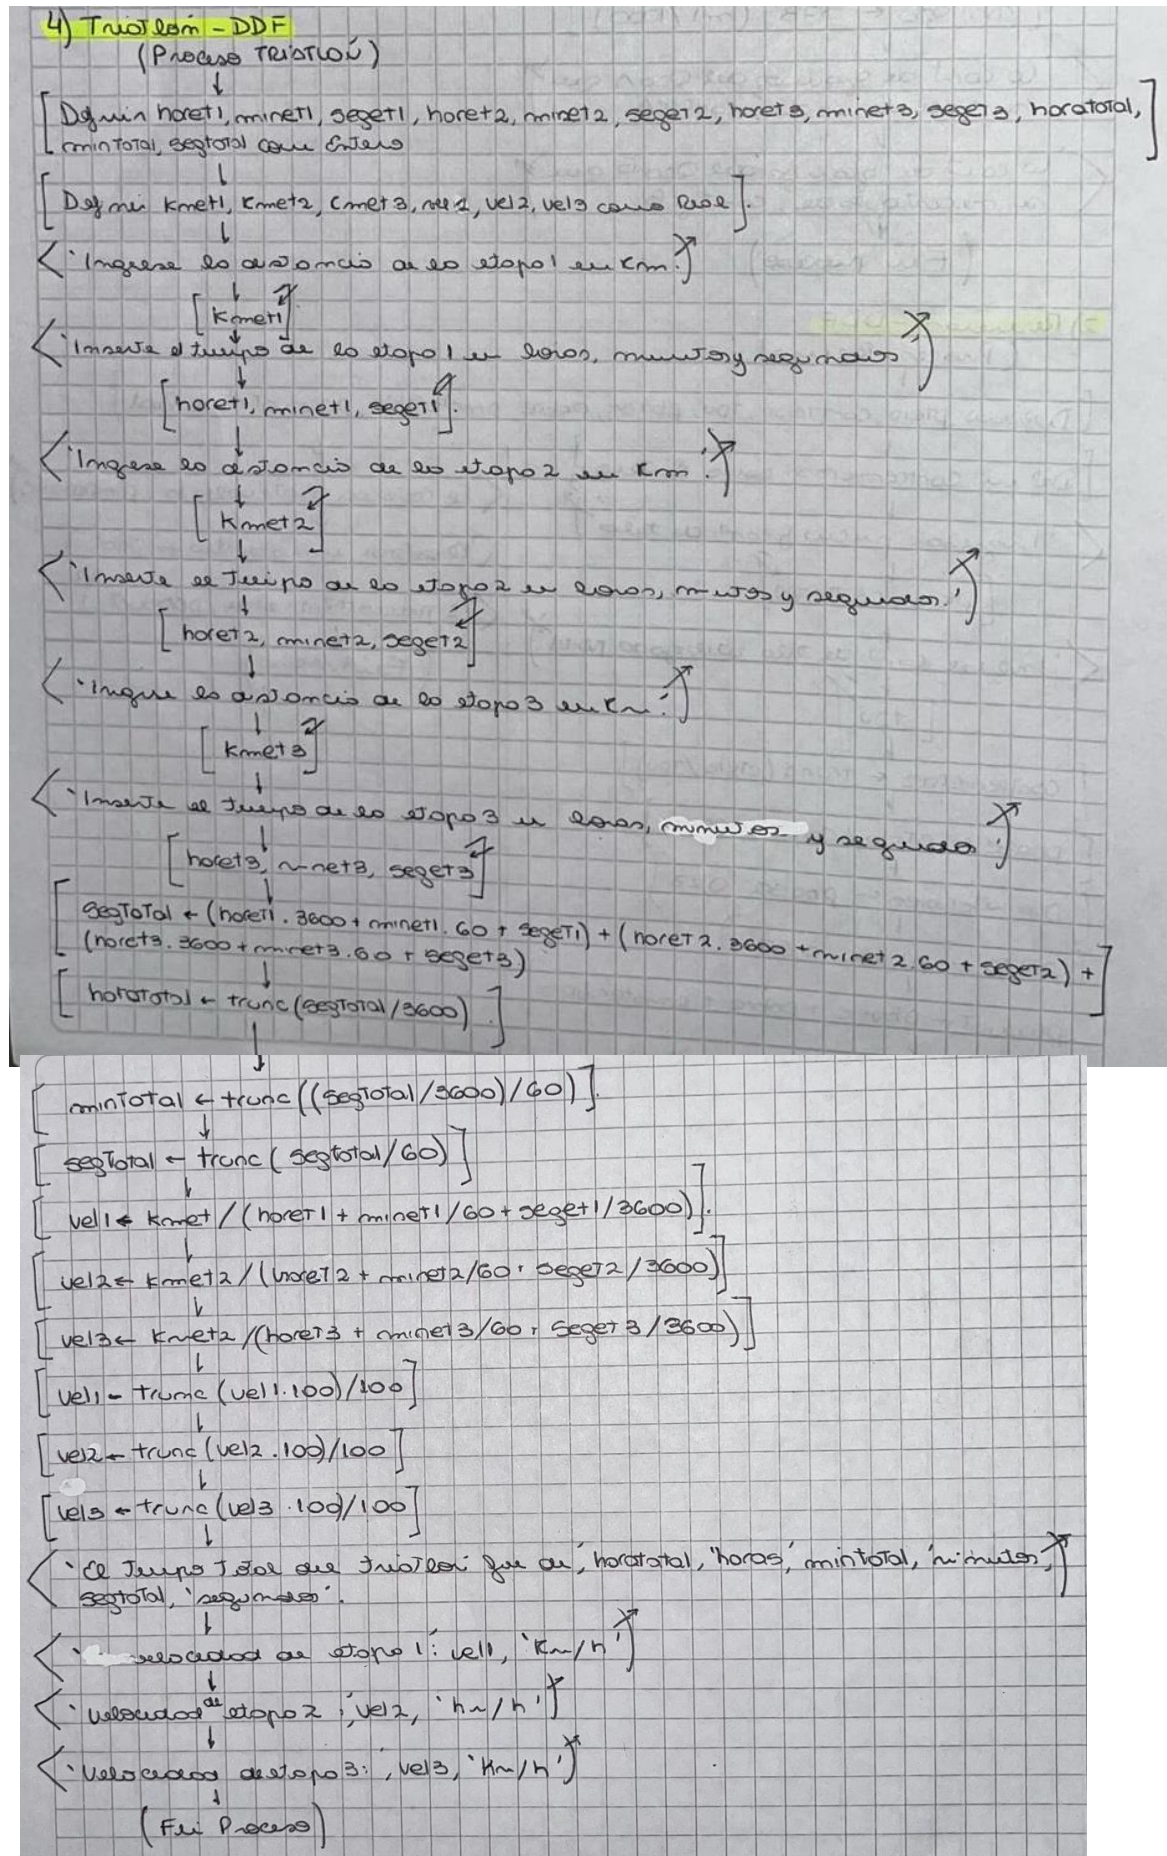 4) Triatlón - DDF
(Proceso TRIATLÓN)
[Definir horet1, minet1, seget1, horet2, minet2, seget2, horet3, minet3, seget3, horatotal,
mintotal, segtotal como Entero]
[Definir kmet1, kmet2, kmet3, vel1, vel2, vel3 como Real].
<'Ingrese la distancia de la etapa1 en km:'
[kmet1]
<'Inserte el tiempo de la etapa1 en horas, minutos y segundos:'
[horet1, minet1, seget1].
<'Ingrese la distancia de la etapa2 en km:'
[kmet2]
<'Inserte el tiempo de la etapa2 en horas, minutos y segundos:'
[horet2, minet2, seget2]
<'Ingrese la distancia de la etapa3 en km:'
[kmet3]
<'Inserte el tiempo de la etapa3 en horas, minutos y segundos:'
[horet3, minet3, seget3]
[segTotal ← (horet1.3600 + minet1.60 + seget1) + (horet2.3600 + minet2.60 + seget2) +
(horet3.3600 + minet3.60 + seget3)]
[horatotal ← trunc(segTotal/3600).]
[minTotal ← trunc((segTotal/3600)/60)].
[segTotal ← trunc(segtotal/60)]
[vel1 ← kmet/(horet1 + minet1/60 + seget1/3600)].
[vel2 ← kmet2/(horet2 + minet2/60 + seget2/3600)]
[vel3 ← kmet2/(horet3 + minet3/60 + seget3/3600)]
[vel1 ← trunc(vel1.100)/100]
[vel2 ← trunc(vel2.100)/100]
[vel3 ← trunc(vel3.100)/100]
<'El tiempo total del triatlón fue de', horatotal, 'horas', mintotal, 'minutos',
segtotal, 'segundos'.
<'velocidad de etapa1:' vel1, 'Km/h'
<'velocidad de etapa2:', vel2, 'km/h'
<'Velocidad de etapa3:', vel3, 'Km/h'
(Fin Proceso)